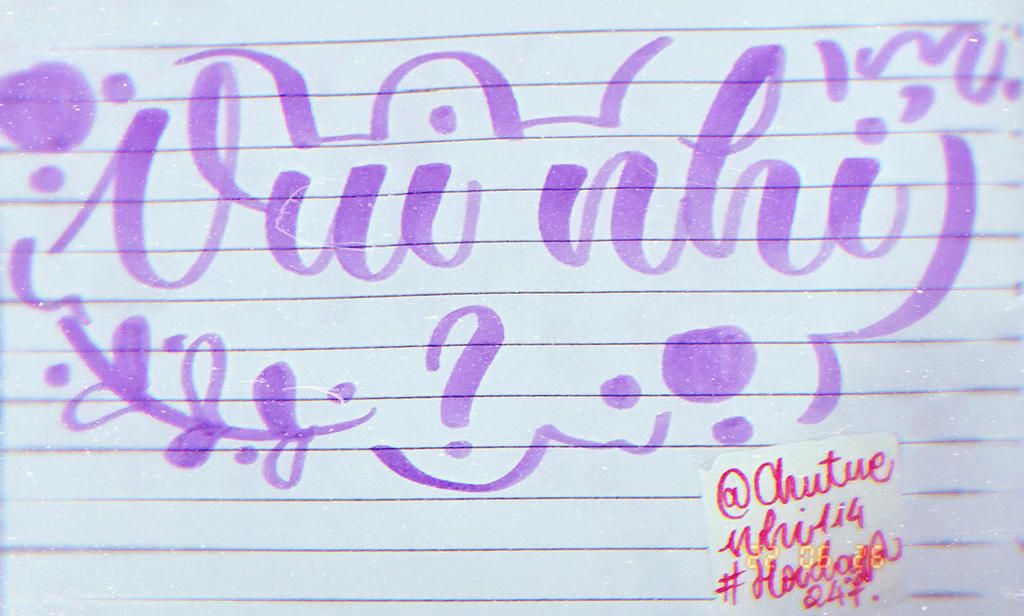 Vui nhỉ
?
@Chutue
#Hoidap
247.